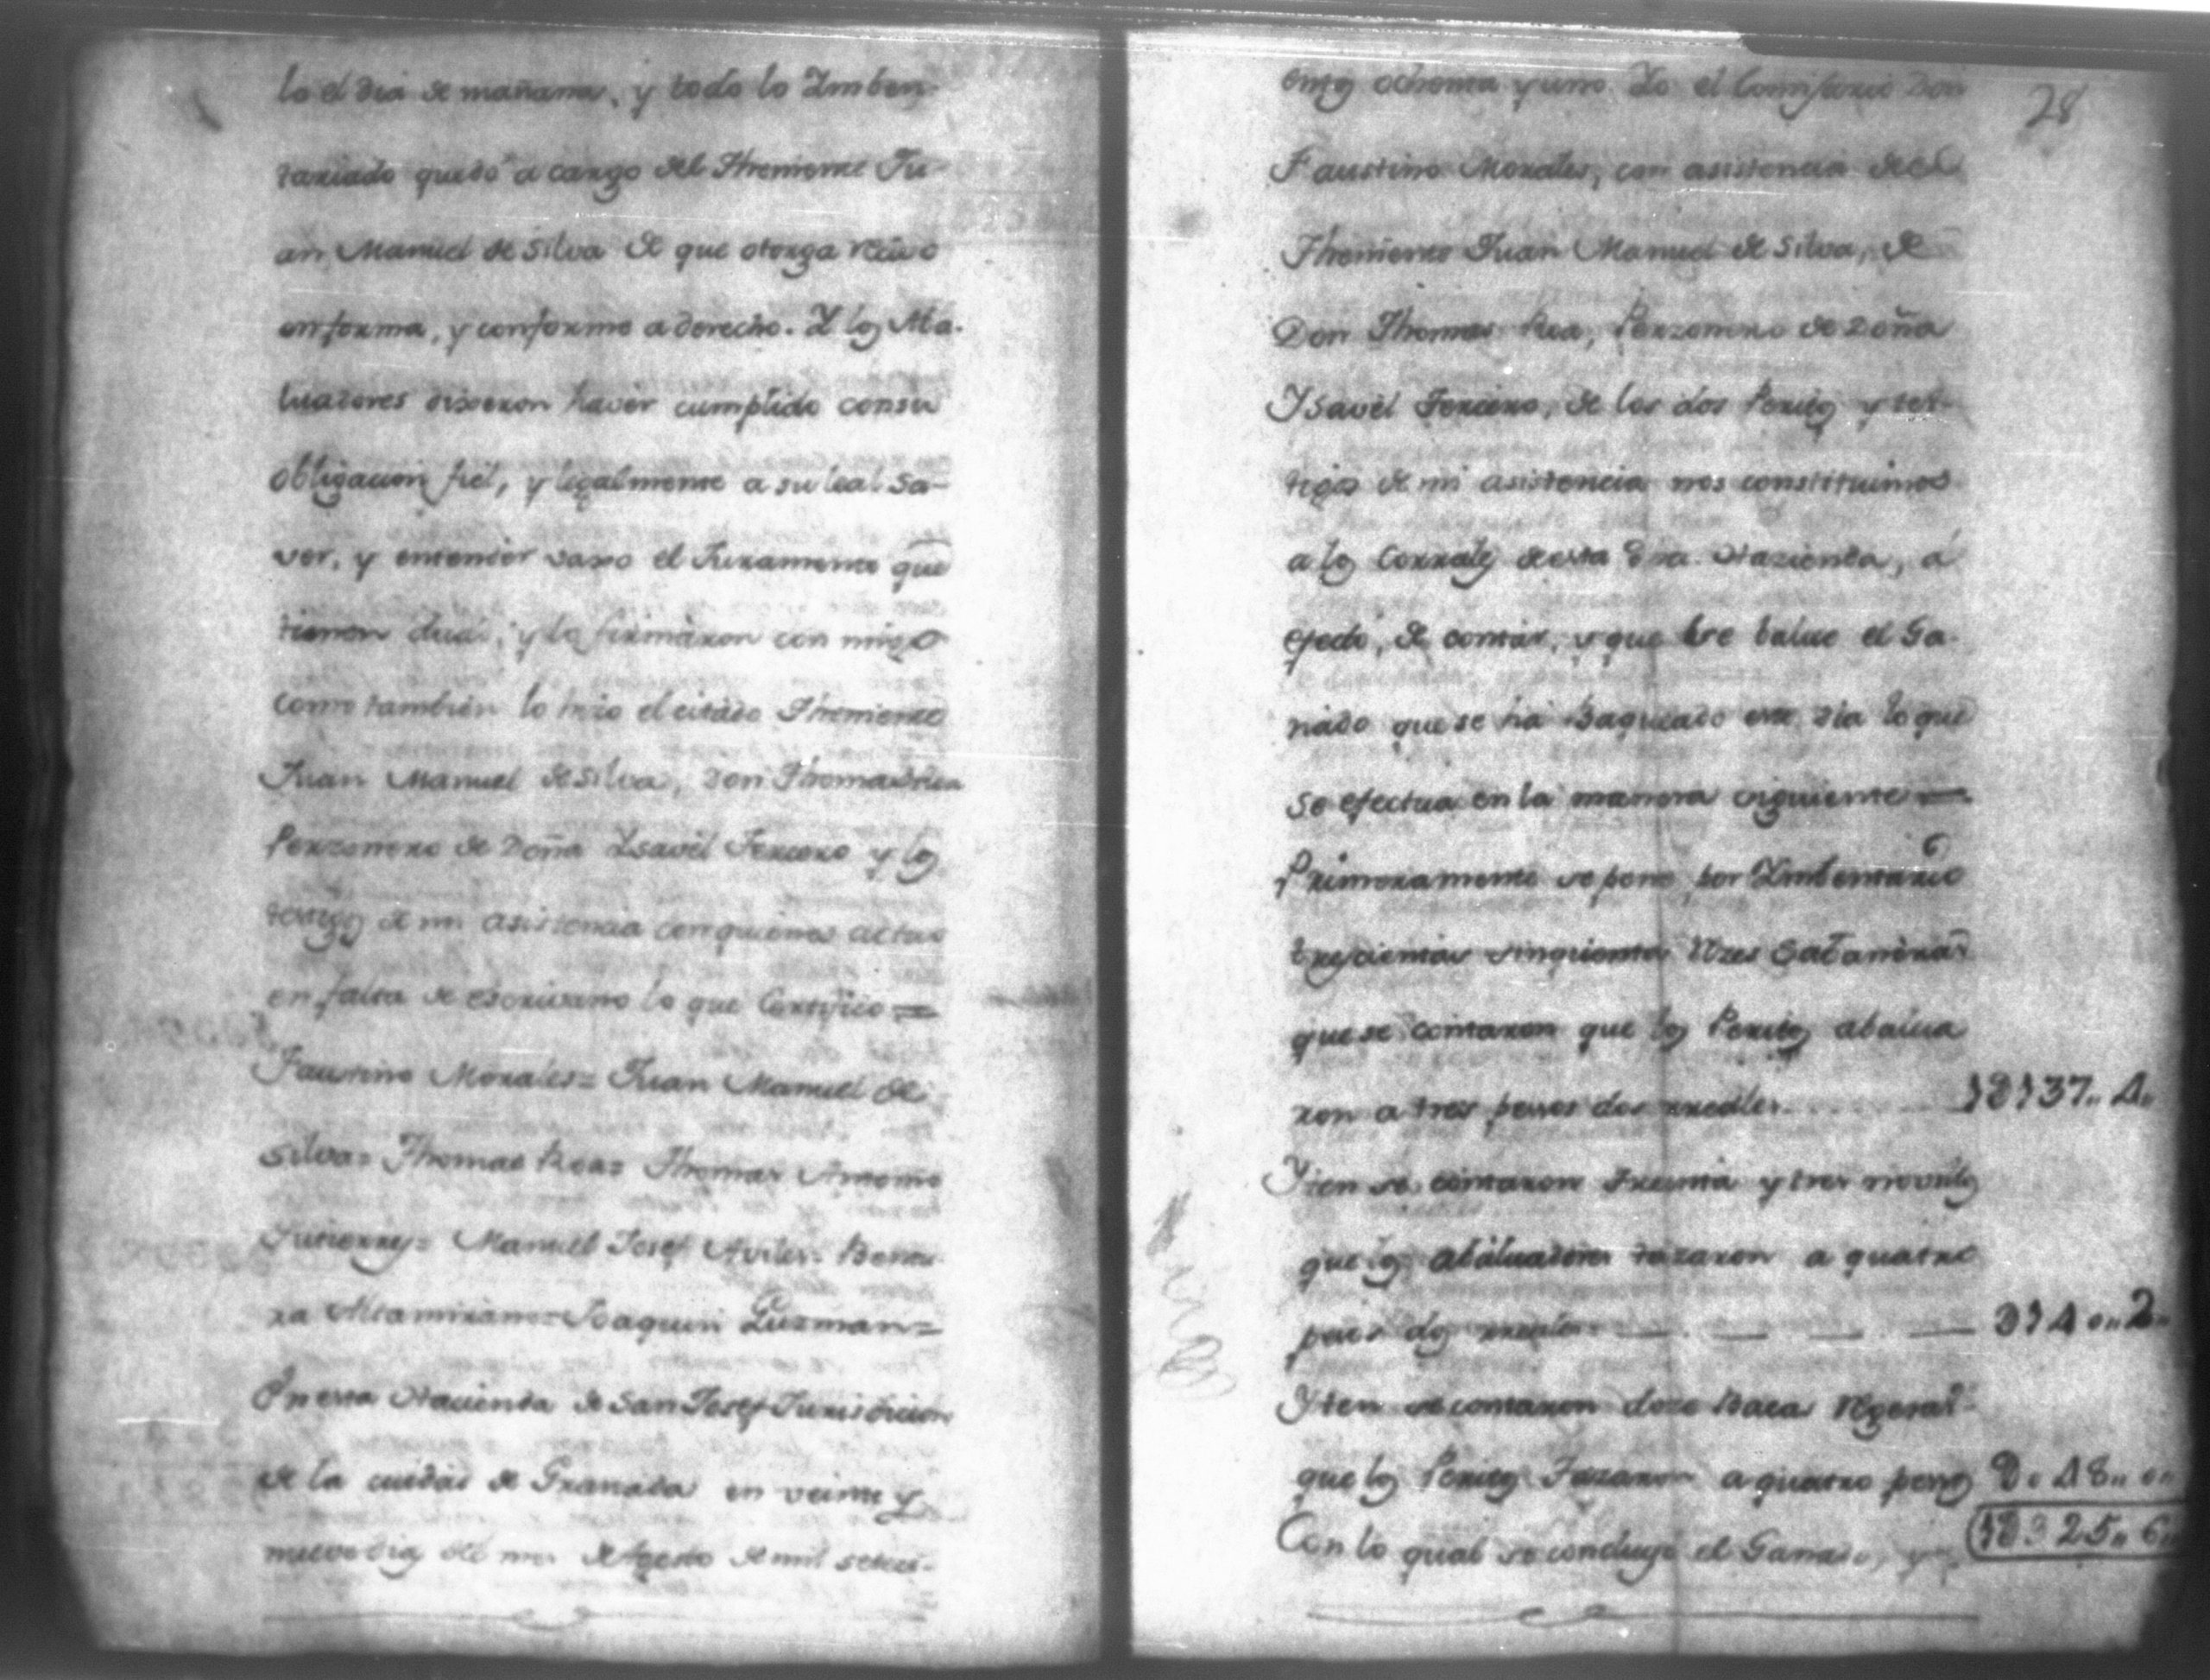 lo el dia de mañana, y todo lo Imben-
tariado quedó a cargo del Theniente Ju-
an Manuel de Silva de que otorga recivo
en forma, y conforme a derecho. Y los Aba-
luadores dixeron haver cumplido con su
obligacion fiel, y legalmente a su leal sa-
ver, y entender vaxo el Juramento que
tienen dicho, y lo firmaron con migo
como tambien lo hizo el citado Theniente
Juan Manuel de Silva, Don Thomas Rea
Perzonero de Doña Ysavel Tercero y los
testigos de mi asistencia con quienes actuo
en falta de escrivano lo que Certifico =
Faustino Morales = Juan Manuel de
Silva = Thomas Rea = Thomas Antonio
Gutierrez = Manuel Josef Aviles = Bentu-
ra Altamirano = Joaquin Guzman =
En esta Hacienda de San Josef Jurisdicion
de la ciudad de Granada en veinte y
nueve dias del mes de Agosto de mil setesi-
28
entos ochenta y uno. Yo el Comisario Don
Faustino Morales, con asistencia del
Theniente Juan Manuel de Silva, de
Don Thomas Rea, Perzonero de Doña
Ysavel Tercero, de los dos Peritos y tes-
tigos de mi asistencia nos constituimos
a los Corrales de esta dha. Hazienda, á
efecto, de contar, y que se balue el Ga-
nado que se ha Baqueado este dia lo que
se efectua en la manera siguiente =
Primeramente se pone por Imbentario
trescientas sinquenta Rzes
que se contaron que los Peritos abalua
ron a tres pesos dos rreales. 1137.. 4..
Yten se contaron treinta y tres novillos
que los abaluadores tazaron a quatro
pesos dos rreales. 140.. 2..
Yten se contaron doze Bacas
que los Peritos Tazaron a quatro pesos 48..
Con lo qual se concluyó el Ganado, y 1325.. 6..